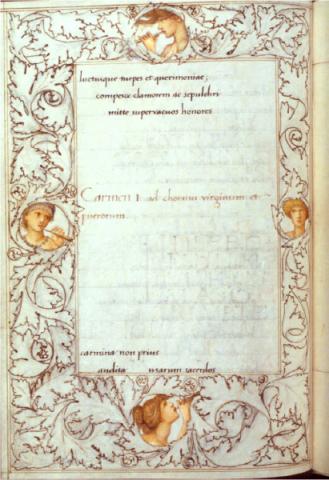 luctusque turpes et querimoniae;
compesce clamorem ac sepulchri
mitte supervacuos honores
Carmen I. ad chorum virginum et
puerorum.
carmina non prius
audita   Musarum sacerdos